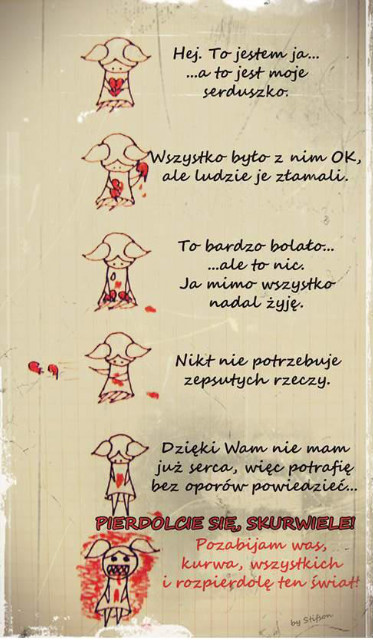 Hey. To jestem ja...
...a to jest moje
serduszko.
Wszystko było z nim OK,
ale ludzie je złamali.
To bardzo bolało...
...ale to nic.
Ja mimo wszystko
nadal żyję.
Nikt nie potrzebuje
zepsutych rzeczy.
Dzięki Wam nie mam
już serca, więc potrafię
bez oporów powiedzieć...
PIERDOLCIE SIĘ, SKURWIELE!
Pozabijam was,
kurwa, wszystkich
i rozpierdolę ten świat!
by Stifson